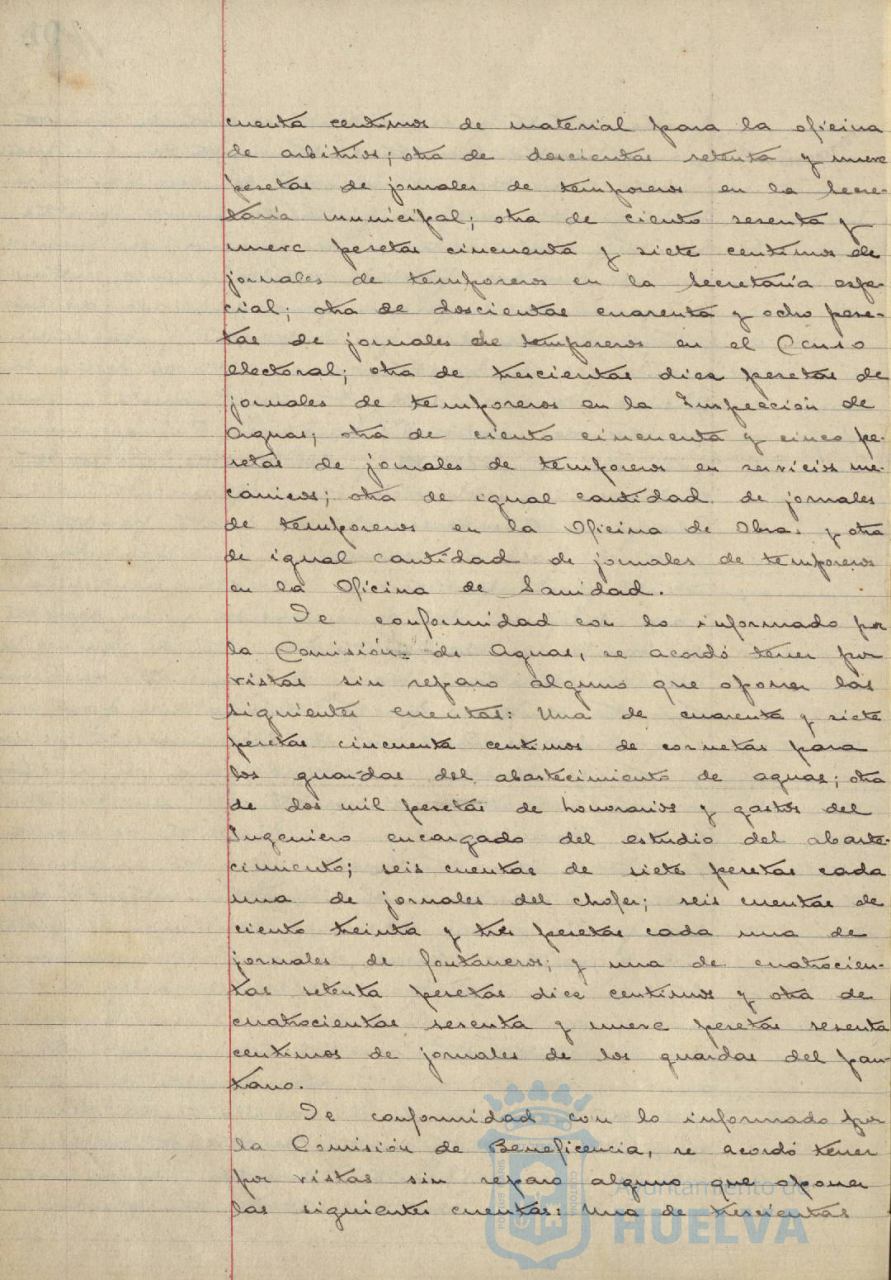 cuenta centimos de material para la oficina
de arbitrios; otra de doscientas setenta y nueve
pesetas de jornales de temporeros en la Secre-
taria municipal; otra de ciento sesenta y
nueve pesetas cincuenta y siete centimos de
jornales de temporeros en la Secretaría espe-
cial; otra de doscientas cuarenta y ocho pese-
tas de jornales de temporeros en el Censo
electoral; otra de trescientas diez pesetas de
jornales de temporeros en la Inspección de
Aguas; otra de ciento cincuenta y cinco pe-
setas de jornales de temporeros en servicios me-
cánicos; otra de igual cantidad de jornales
de temporeros en la Oficina de Obras y otra
de igual cantidad de jornales de temporeros
en la Oficina de Sanidad.
De conformidad con lo informado por
la Comisión de Aguas, se acordó tener por
vistas sin reparo alguno que oponer las
siguientes cuentas: Una de cuarenta y siete
pesetas cincuenta centimos de cornetas para
los guardas del abastecimiento de aguas; otra
de dos mil pesetas de honorarios y gastos del
Ingeniero encargado del estudio del abaste-
cimiento; seis cuentas de siete pesetas cada
una de jornales del chofer; seis cuentas de
ciento treinta y tres pesetas cada una de
jornales de fontaneros; y una de cuatrocien-
tas setenta pesetas diez centimos y otra de
cuatrocientas sesenta y nueve pesetas sesenta
centimos de jornales de los guardas del pan-
tano.
De conformidad con lo informado por
la Comisión de Beneficencia, se acordó tener
por vistas sin reparo alguno que oponer
las siguientes cuentas: Una de trescientas
Ayuntamiento de
HUELVA